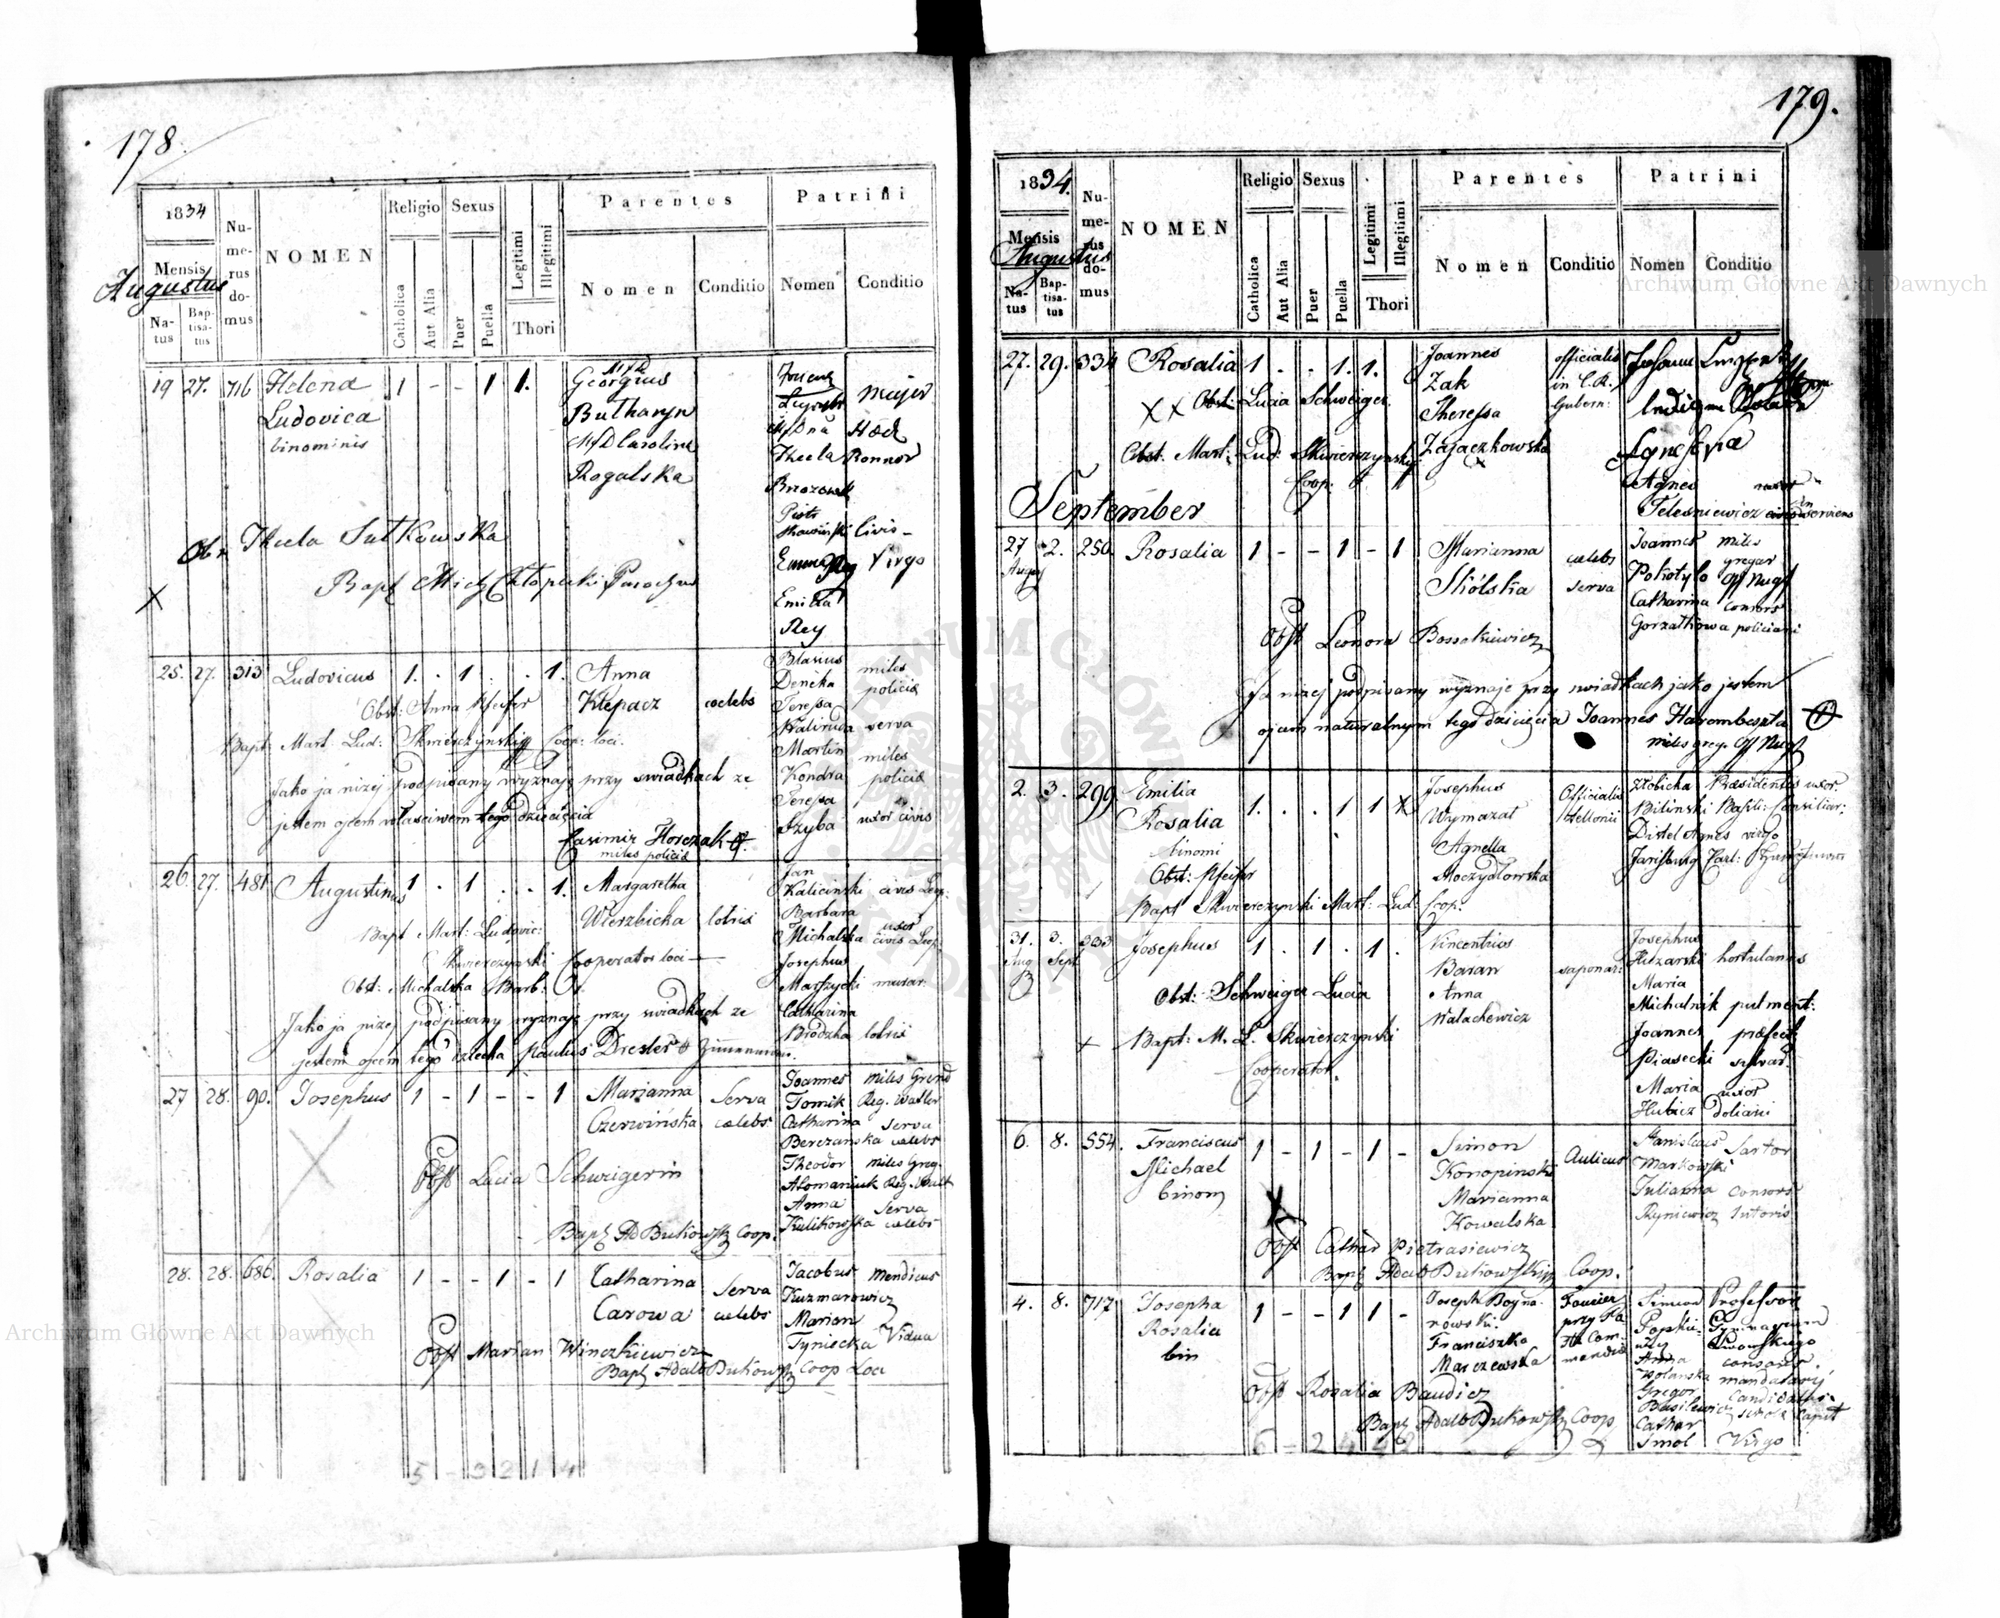 178.
1834
Numerus domus
NOMEN
Religio
Sexus
Parentes
Patrini
Mensis
Augustus
Natus
Baptisatus
Catholica
Aut Alia
Puer
Puella
Legitimi
Illegitimi
Thori
Nomen
Conditio
Nomen
Conditio
19 27. 716 Helena 1 - - 1 1. Georgius
Ludovica Butharyn
binominis Carolina
Rogalska
Major
Thecla
Civis
Virgo
Emilia
Rey
Obs Thecla Sutkowska
Bapt Mich Chłopicki Parochus
25. 27. 313 Ludovicus 1. . 1 . . 1. Anna Blasius miles
Deneka policia
Obst: Anna Pfeifer Klepacz coelebs Teressa
Kalinida serva
Bapt: Mart: Lud: Skwierczynski Coop: loci. Martin miles
Jako ja niżej podpisany wyznaję przy swiadkach ze Kondra policia
Teressa
jestem ojcem własciwem tego dziecięcia Szyba uxor civis
Casimir Florczak
miles policia
26. 27. 481 Augustinus 1 . 1 . . 1. Margaretha Jan
Kalicinski civis Leop:
Bapt Mart: Ludovic: Wierzbicka lotrix Barbara uxor
Michalska civis Leop:
Skwierczynski Cooperator loci Josephus
Obst: Michalska Barb: Marszycki murar:
Jako ja niżej podpisany wyznaję przy swiadkach ze Catharina
Brodzka lotrix
jestem ojcem tego dziecka Paulus Drester Zimmermann.
27 28. 90. Josephus 1 - 1 - - 1 Marianna Serva Joannes Miles Grend
Czerwińska celebs Tomik Reg. Watler
Catharina serva
Berezanska celebs
Obst Lucia Schweigerin Theodor Miles Greg.
Atomaniuk Reg.
Anna Serva
Bapt Ad Bukowski Coop. Kulikowska celebs
28. 28. 686. Rosalia 1 - - 1 - 1 Catharina Serva Jacobus Mendicus
Carowa celebs Kuzmarowicz
Marian
Obst Marian Winczkiewicz Tyniecka Vidua
Bapt Adalb Bukowski Coop Loci
5 - 3 2 1 4
179.
1834.
Numerus domus
NOMEN
Religio
Sexus
Parentes
Patrini
Mensis
Augustus
Natus
Baptisatus
Catholica
Aut Alia
Puer
Puella
Legitimi
Illegitimi
Thori
Nomen
Conditio
Nomen
Conditio
27. 29. 334 Rosalia 1 . . 1. 1. Joannes officialis
Zak in C.R.
Obst: Lucia Schweiger. Theressa Gubern:
Obst. Mart: Lud: Skwierczynski Zajaczkowska
Coop.
Agnes uxor
Telesniewicz serviens
September
27 2. 250. Rosalia 1 - - 1 - 1 Marianna celebs Joannes miles
Augus Skolska serva gregar
Pokotylo
Catharina consors
Obst Leonora Bossakiewicz Gorzałkowa policiani
Ja niżej podpisany wyznaję przy swiadkach jako jestem
ojcem naturalnym tego dziecięcia Joannes Harombeszta
miles greg:
2. 3. 299. Emilia 1. . . 1 1 X Josephus Officialis Złobicka Præsidentis uxor
Rosalia Wymazał Bilinski Basili: Consiliar:
binomi Agnella Distel Agnes virgo
Obst: Pfeifer Moczydłowska
Bapt Skwierczynski Mart: Lud: Coop:
31. 3. 333 Josephus 1 . 1 . 1 . Vincentius saponar: Josephus
Aug Sept Baran Huzarski hortulanus
Obst: Schweiger Lucia Anna Maria
Walachewicz Michalnik pulment:
Bapt: M. L. Skwierczynski Joannes præfect:
Cooperator. Piasecki sylvar:
Maria uxor
Hubicz doliani
6. 8. 554. Franciscus 1 - 1 - 1 - Simon Aulicus Stanislaus Sartor
Michael Konopinski Markowski
binom Marianna Julianna consors
Kowalska Ryniewicz Sutoris
Obst Cathar Pietrasiewicz
Bapt Adalb Bukowski Coop.
4. 8. 717. Josepha 1 - - 1 1 - Joseph Boyna- Fourier Simeon Professor
Rosalia rowski. przy Pa Gymnazium
bin Franciszka Com- Lwowskiego
Marczewska mendie Anna consors
Wolanska mandatary
Obst Rosalia Baudicz Gregor Candidatus
Basilewicz
Bapt Adalb Bukowski Coop Cathar
Smol Virgo
6 - 2 4 4 2
Archiwum Główne Akt Dawnych
Archiwum Główne Akt Dawnych
ARCHIWUM GŁÓWNE AKT DAWNYCH